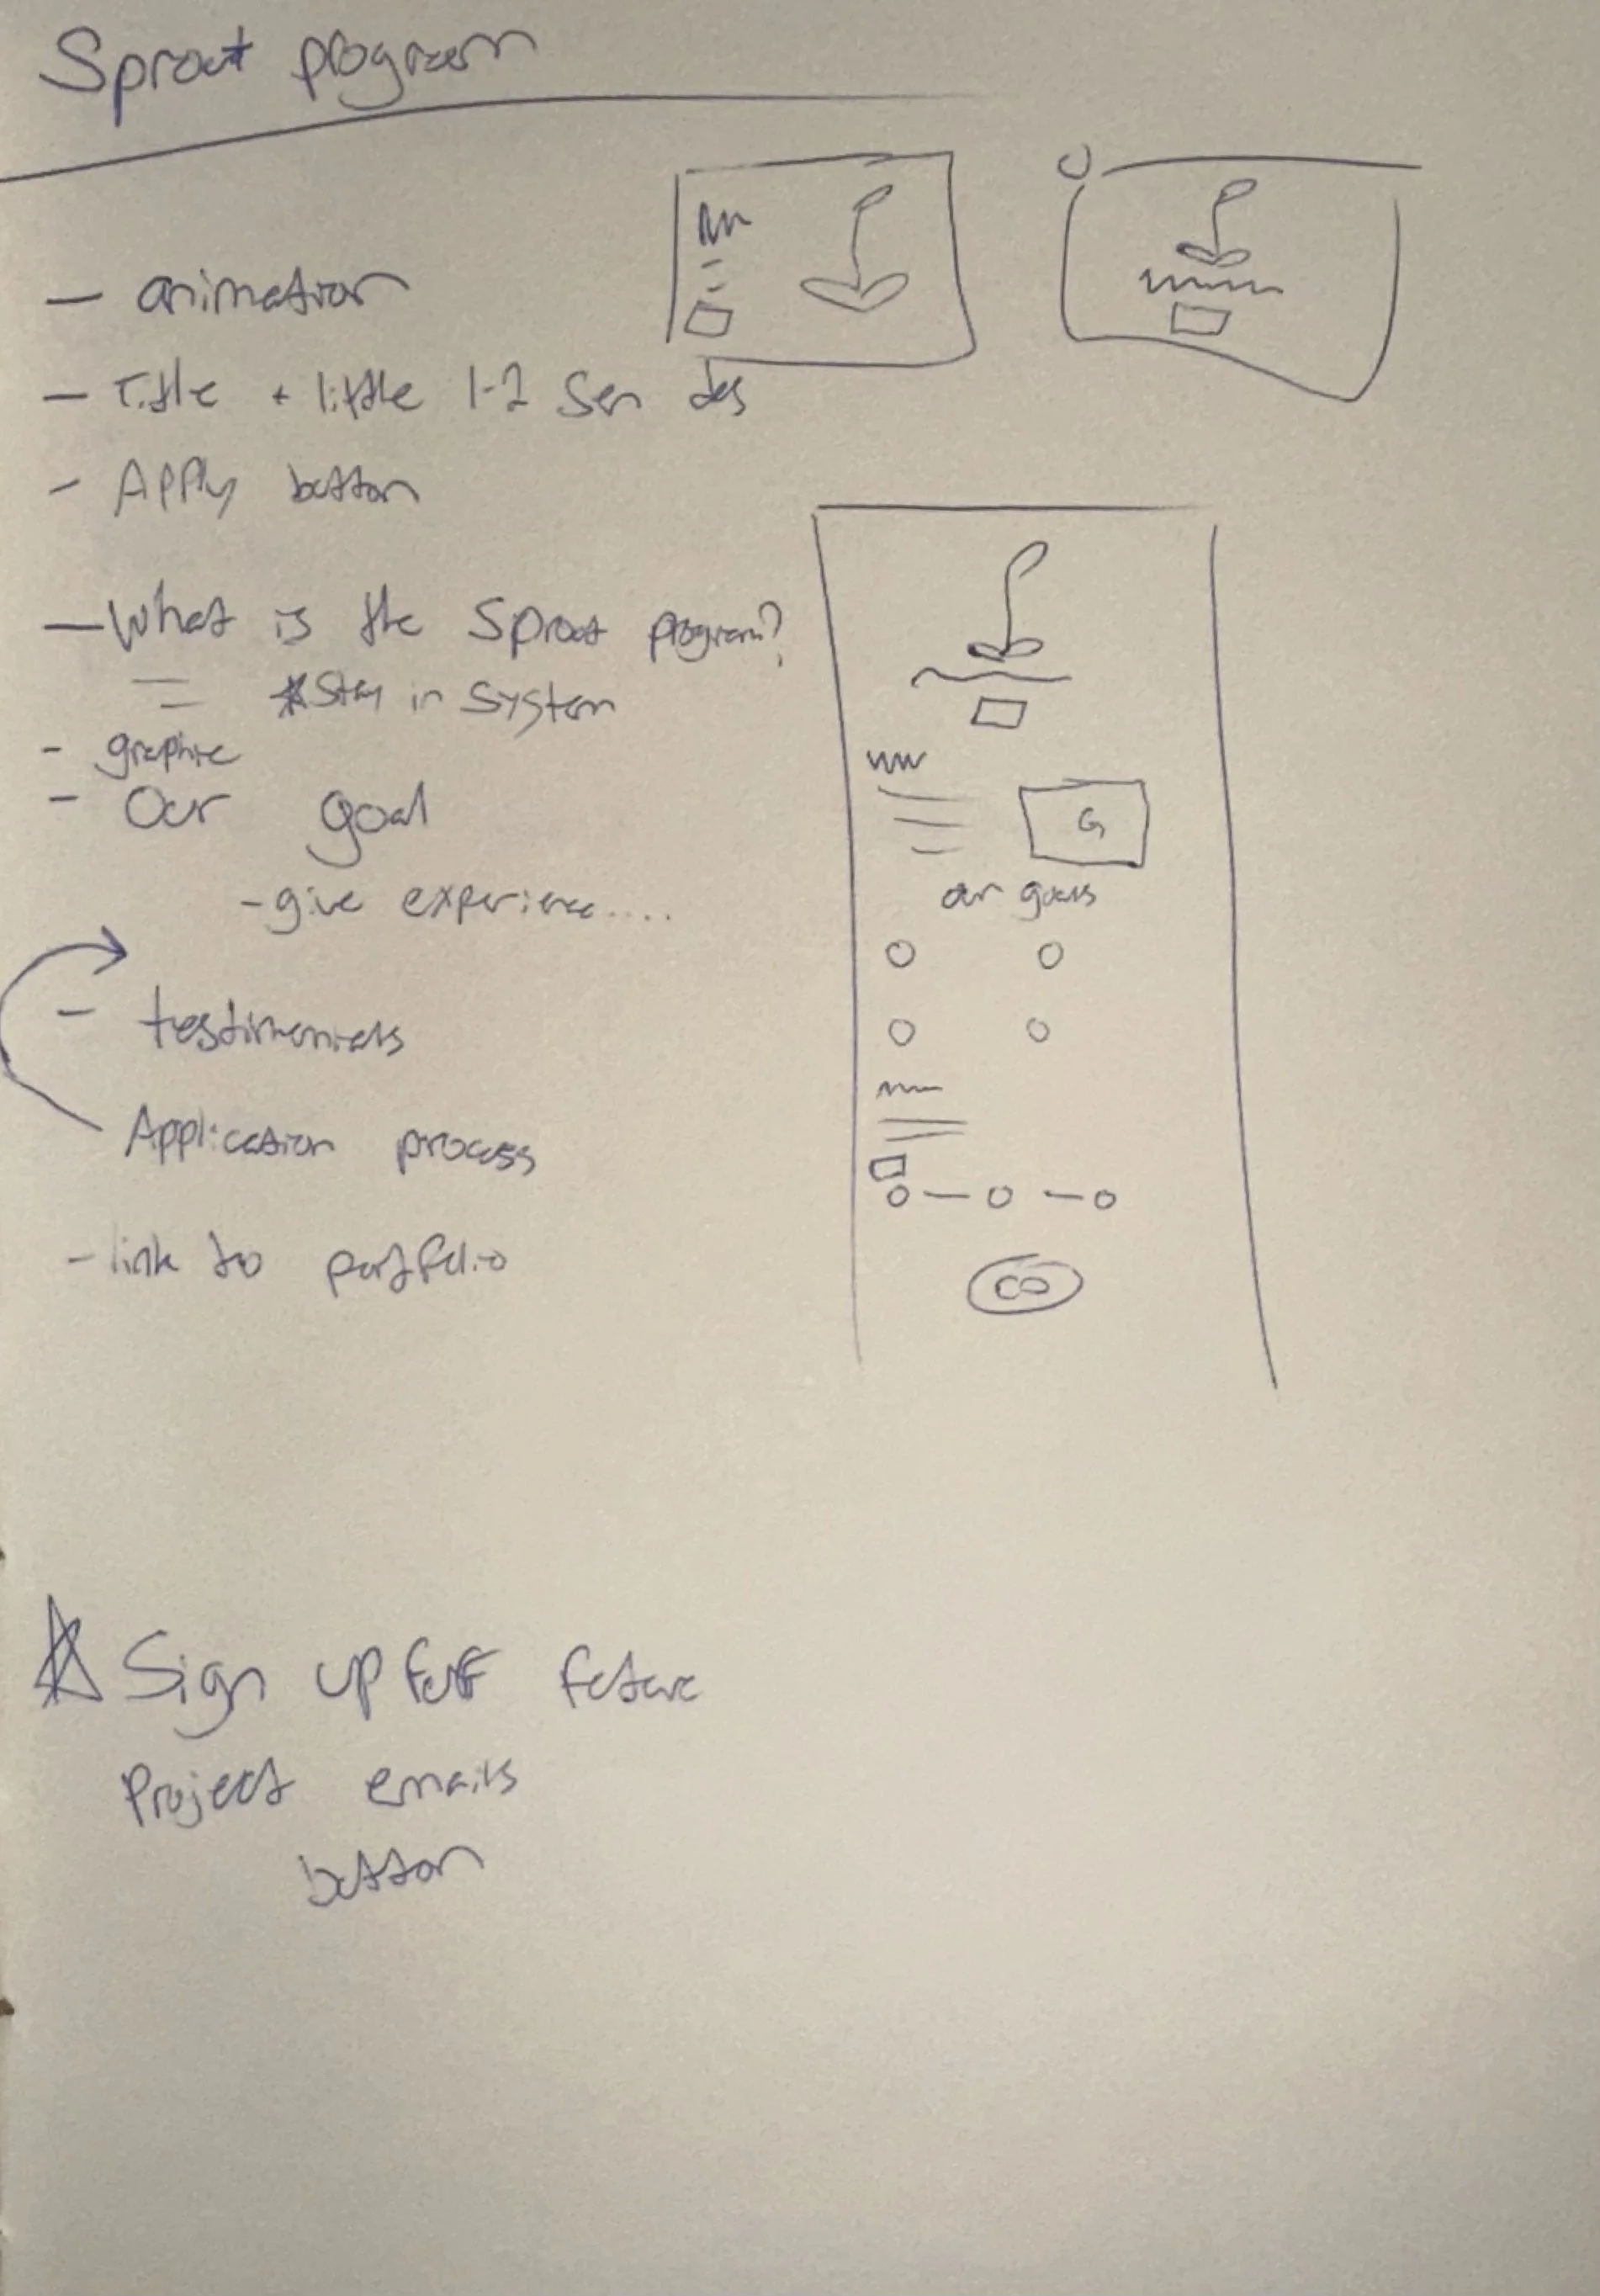 Sprout program
- animation
- Title + little 1-2 Sen des
- Apply button
- What is the Sprout program?
* Stay in System
- graphic
- Our goal
- give experience....
- testimonials
Application process
- link to portfolio
G
our goals
Sign up for future
Project emails
button